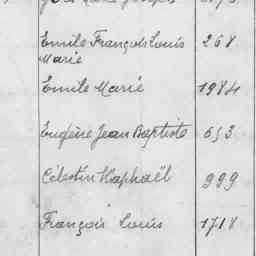 Emile François Louis 268
Marie
Emile Marie 1984
Eugène Jean Baptiste 653
Célestin Raphaël 999
François Louis 1718